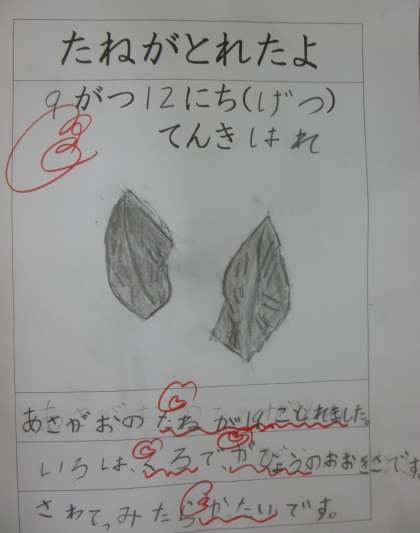 たねがとれたよ
9がつ12にち(げつ)
てんきはれ
あさがおのたねが19ことれました。
いろは、くろで、がびょうのおおきさです。
さわってみたらかたいです。